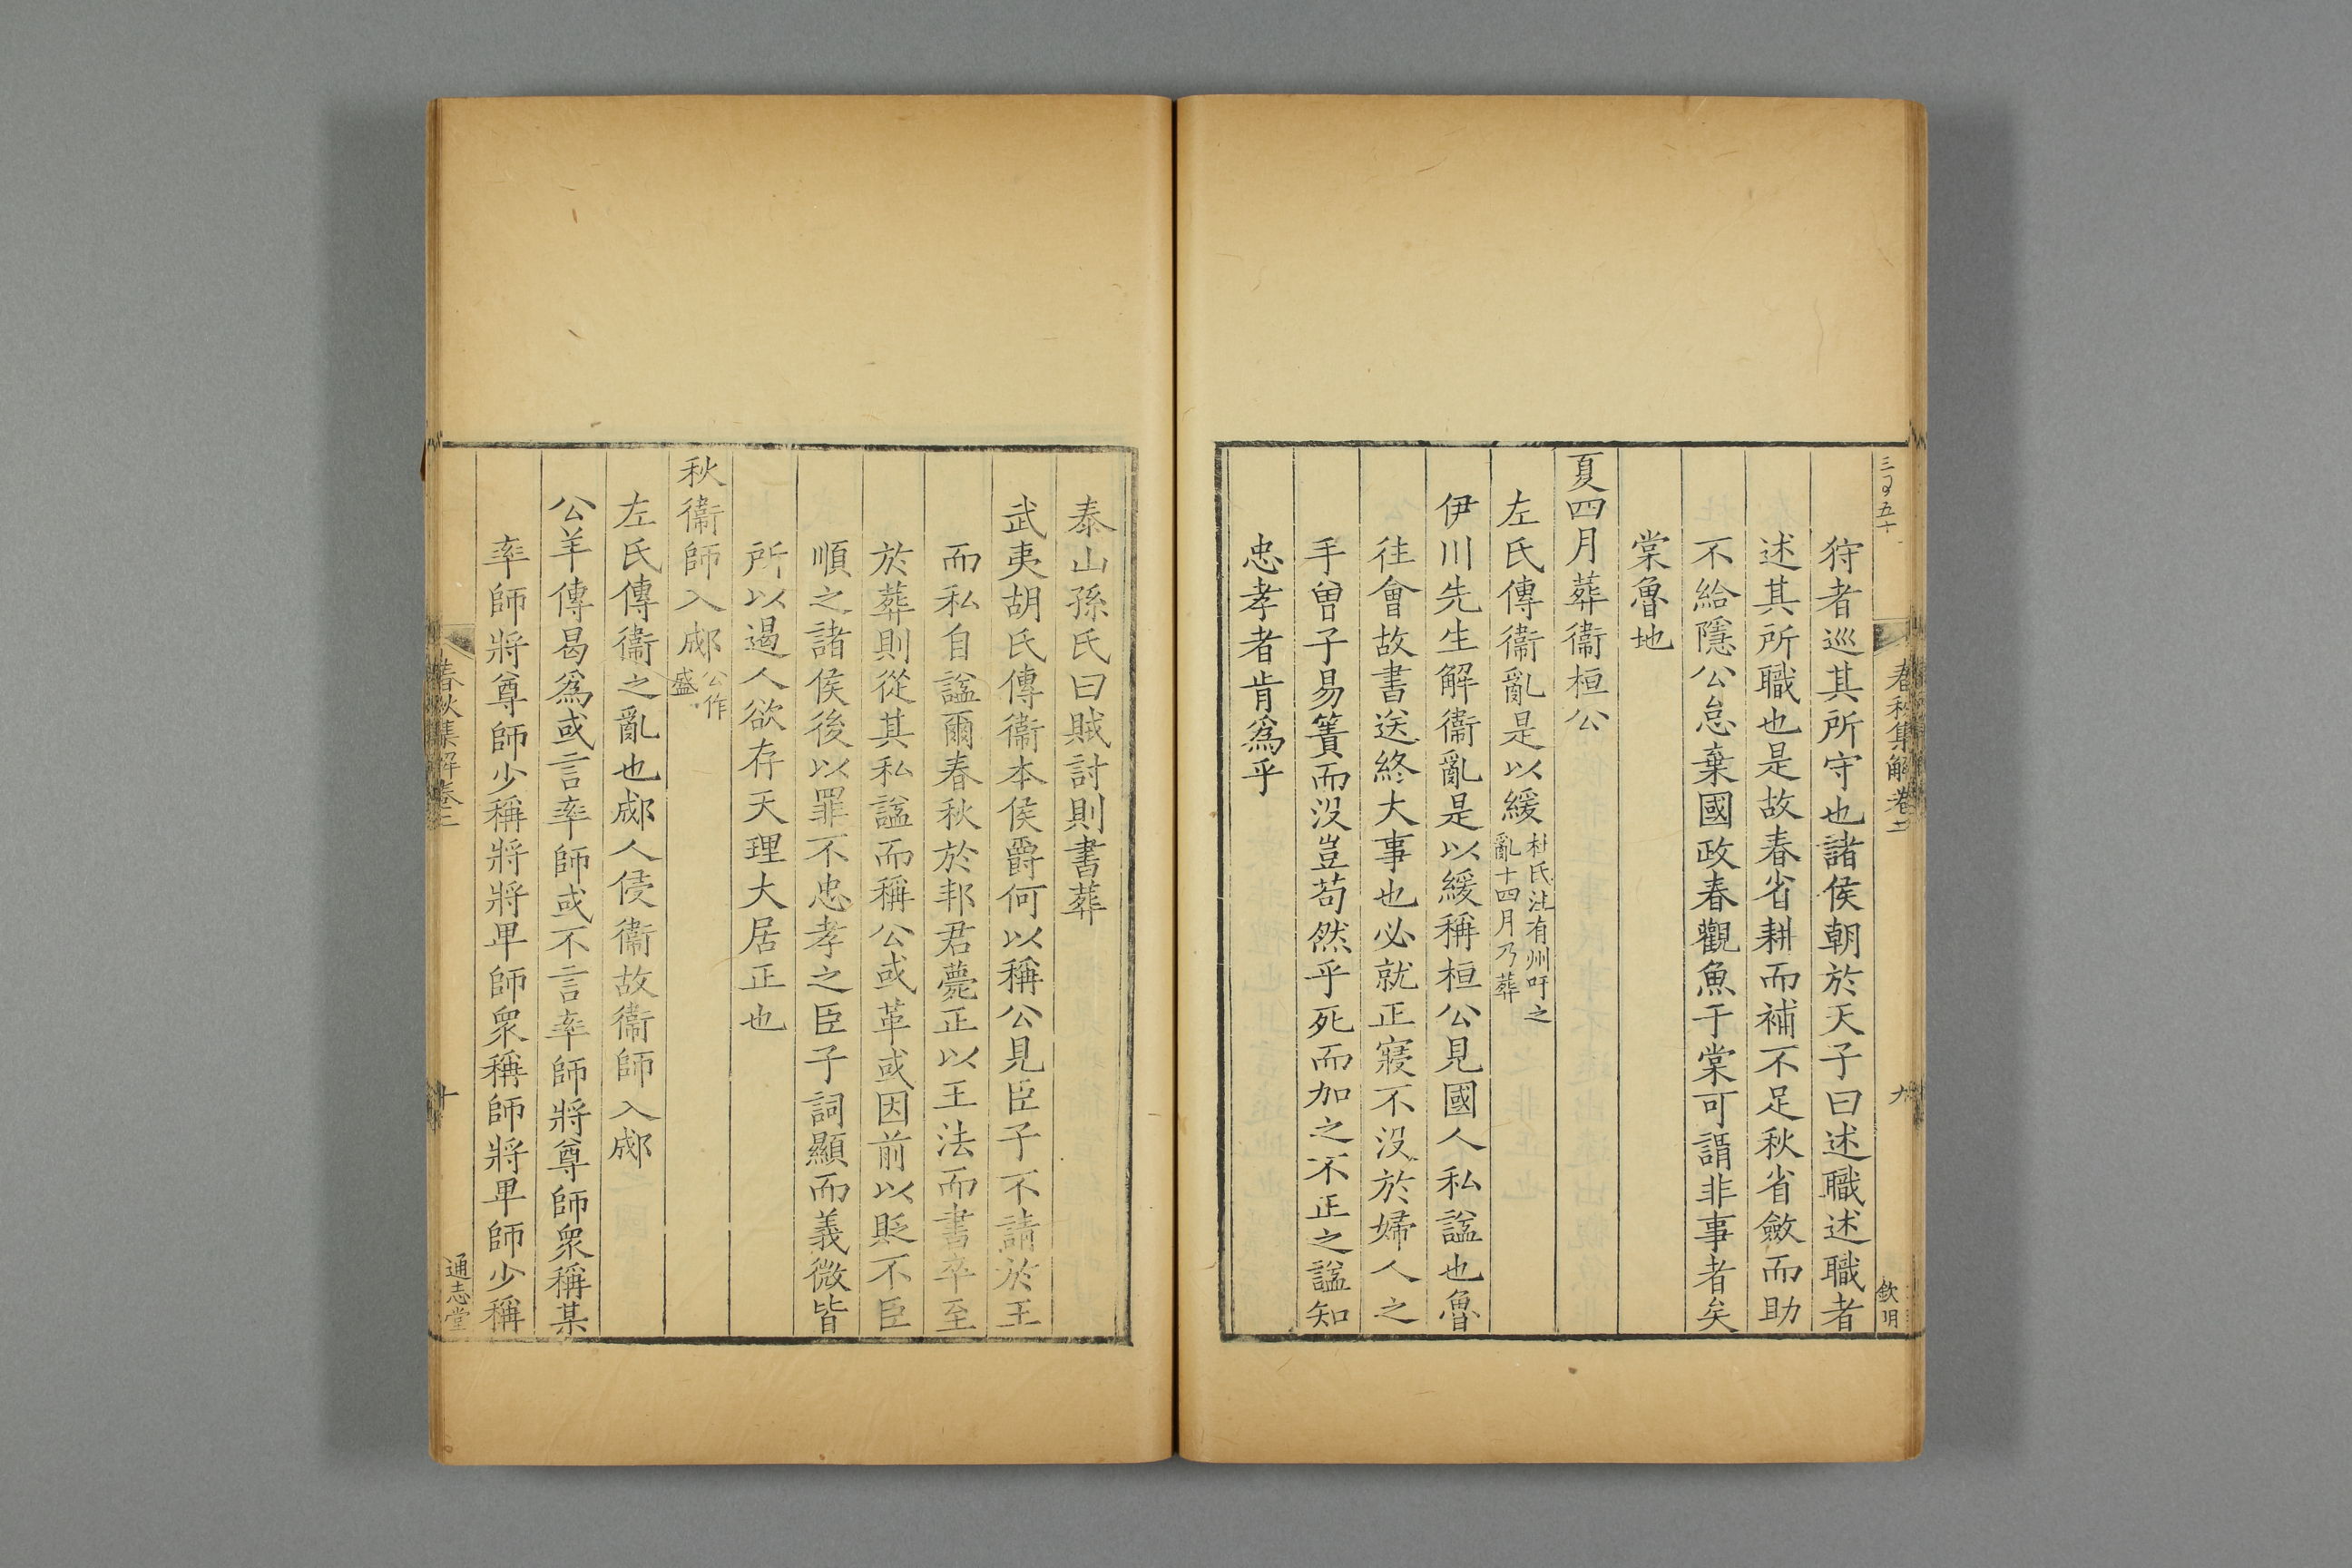 春秋集解卷二
九
欽明
狩者巡其所守也諸侯朝於天子曰述職述職者
述其所職也是故春省耕而補不足秋省斂而助
不給隱公怠棄國政春觀魚于棠可謂非事者矣
棠魯地
夏四月葬衞桓公
左氏傳衞亂是以緩杜氏注有州吁之
亂十四月乃葬
伊川先生解衞亂是以緩稱桓公見國人私諡也魯
往會故書送終大事也必就正寢不沒於婦人之
手曾子易簀而沒豈苟然乎死而加之不正之諡知
忠孝者肯爲乎
泰山孫氏曰賊討則書葬
武夷胡氏傳衞本侯爵何以稱公見臣子不請於王
而私自諡爾春秋於邦君薨正以王法而書卒至
於葬則從其私諡而稱公或革或因前以貶不臣
順之諸侯後以罪不忠孝之臣子詞顯而義微皆
所以遏人欲存天理大居正也
秋衞師入郕公作
盛
左氏傳衞之亂也郕人侵衞故衞師入郕
公羊傳曷爲或言率師或不言率師將尊師衆稱某
率師將尊師少稱將將卑師衆稱師將卑師少稱
春秋集解卷二
十
通志堂